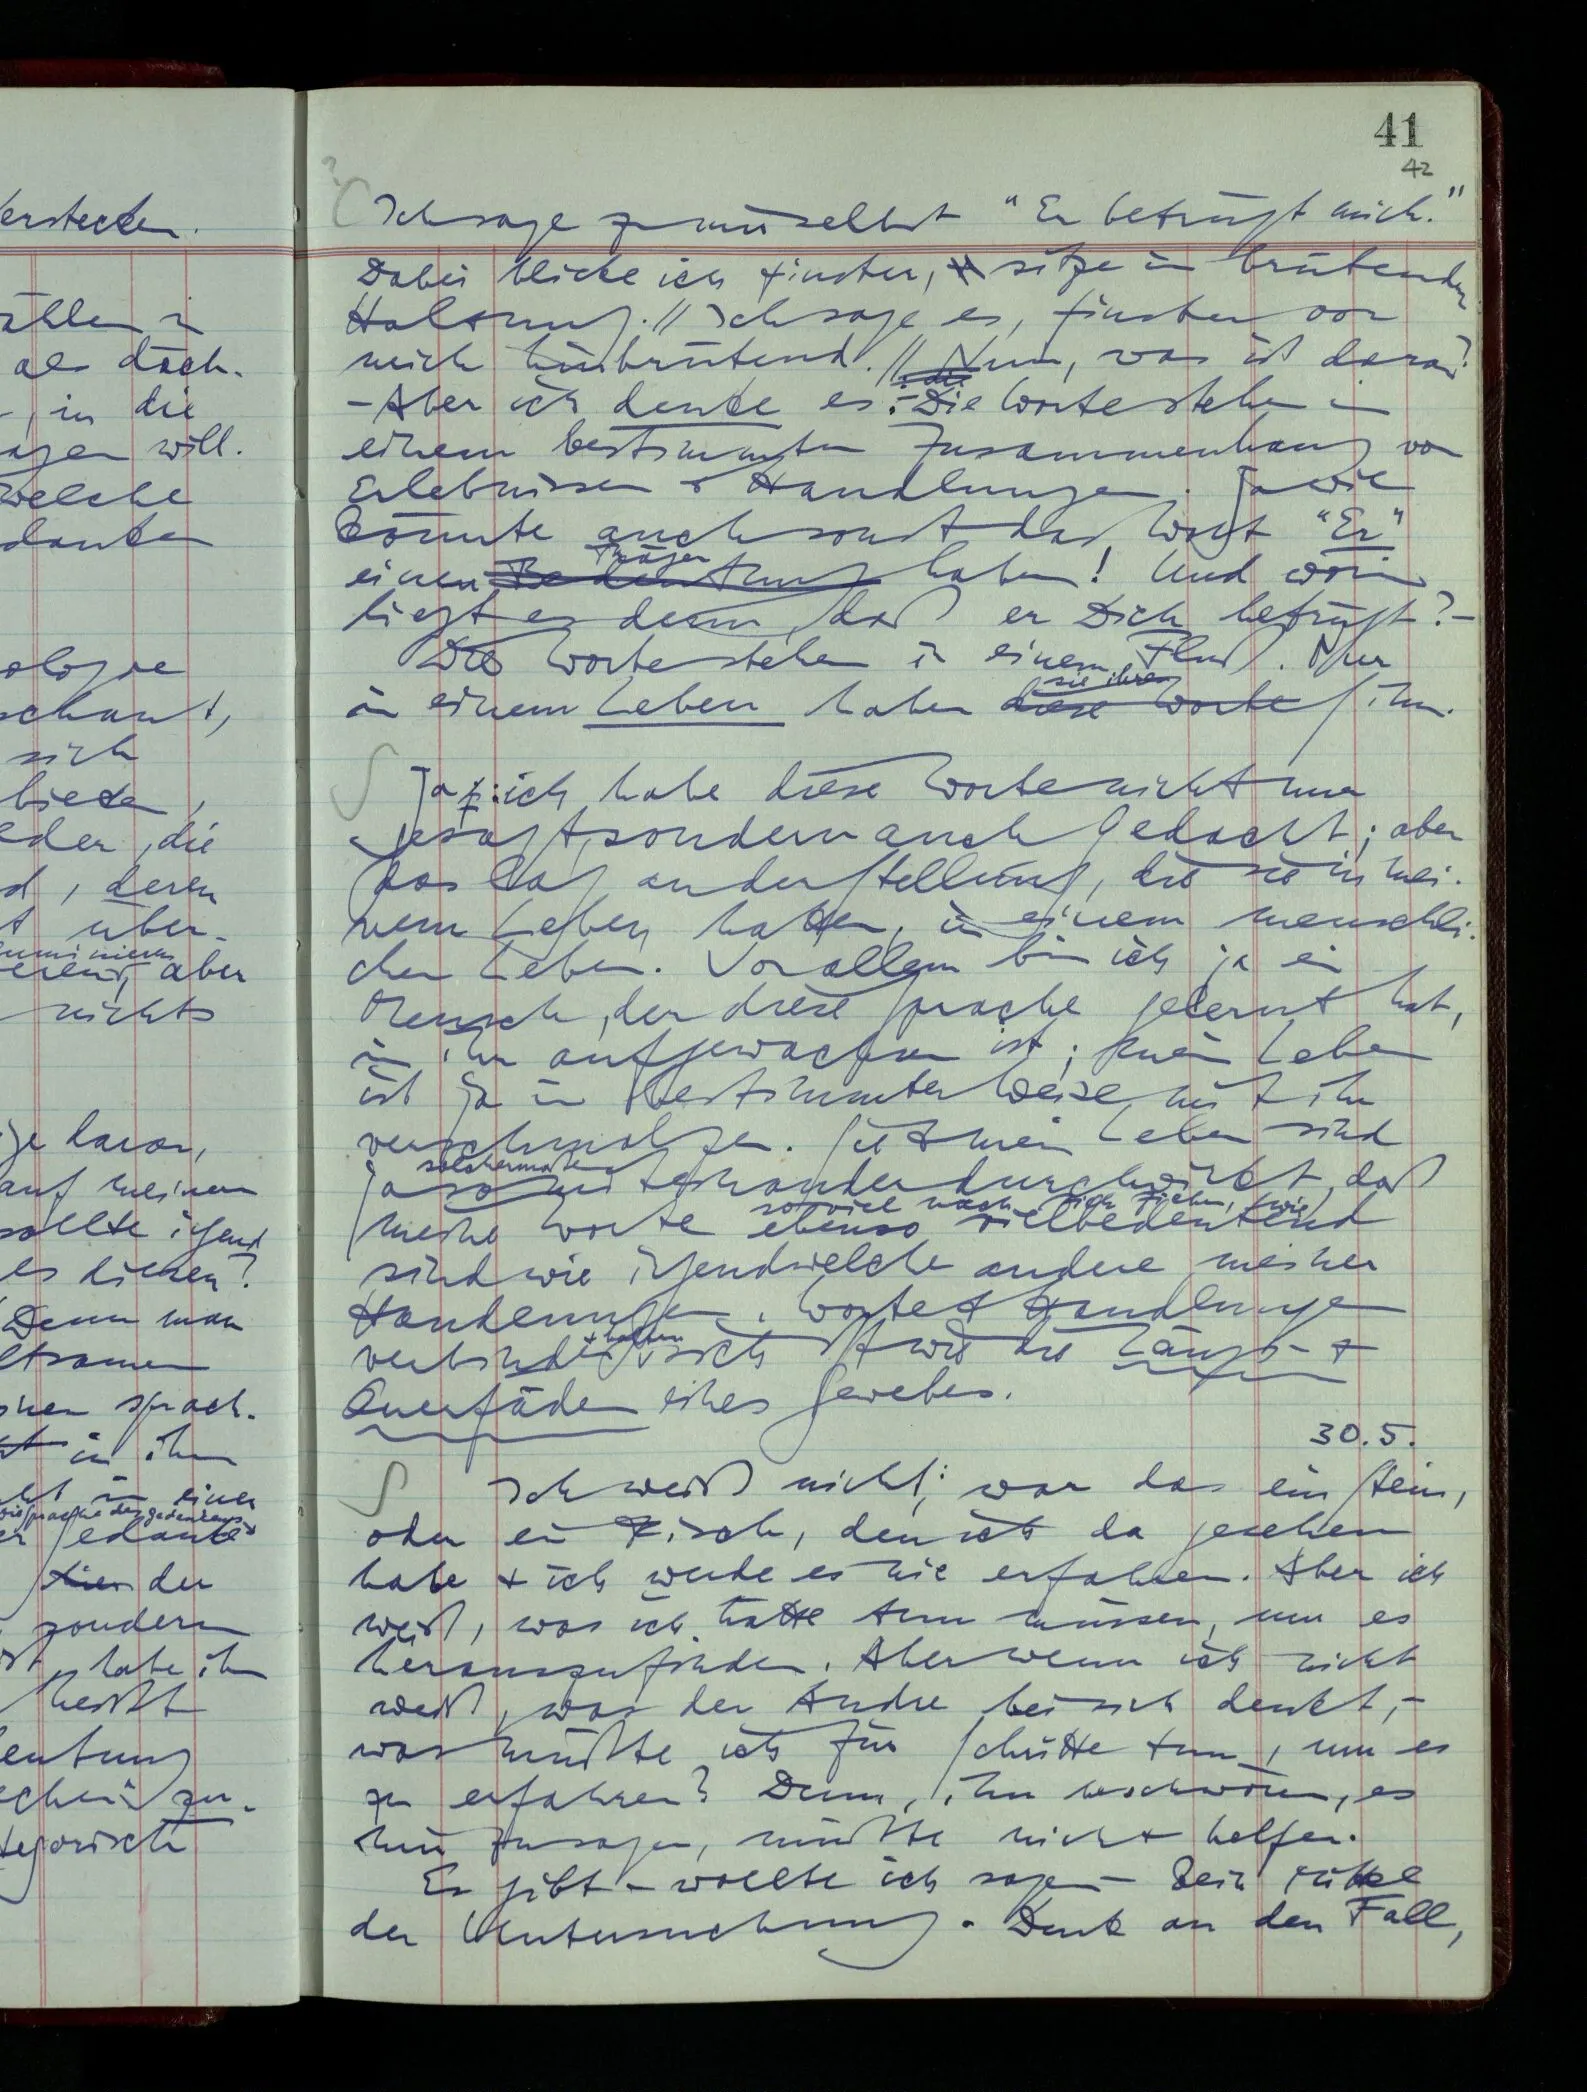 41
42
Ich sage zu mir selbst "Er betrügt mich."
Dabei blicke ich finster, sitze in brütender
Haltung. // Ich sage es, finster vor
mich hinbrütend. // Nun, was ist daran?
– Aber ich denke es: – Die Worte stehen in
die
einem bestimmten Zusammenhang von
Erlebnissen & Handlungen. Ja wie
könnte auch sonst das Wort "Er"
Träger
einen Bedeutung haben! Und worin
liegt es denn, daß er Dich betrügt? –
Die Worte stehen in einem Fluß. Nur
sie ihren
in einem Leben haben diese Worte Sinn.
Ja: ich habe diese Worte nicht nur
gesagt, sondern auch gedacht; aber
das lag an der Stellung, die sie in mei-
nem Leben hatten, in einem menschli-
chen Leben. Vor allem bin ich ja ein
Mensch, der diese Sprache gelernt hat,
in ihr aufgewachsen ist; mein Leben
ist ja in bestimmter Weise mit ihr
verschmolzen. Sie & mein Leben sind
solchermaßen
ja so miteinander durchwirkt, daß
soviel nach sich ziehen, wie
meine Worte ebenso vielbedeutend
sind wie irgendwelche andere meiner
Handlungen. Worte & Handlungen
verbinden sich oft wie die Längs- &
Querfäden eines Gewebes.
30.5.
Ich weiß nicht; war das ein Stein,
oder ein Fisch, den ich da gesehen
habe & ich werde es nie erfahren. Aber ich
weiß, was ich hätte tun müssen, um es
herauszufinden. Aber wenn ich nicht
weiß, was der Andre bei sich denkt, –
was müßte ich für Schritte tun, um es
zu erfahren? Denn, ihn beschwören, es
mir zu sagen, müßte nicht helfen.
Es gibt – wollte ich sagen – kein Mittel
der Untersuchung. Denk an den Fall,
verstecken.
als däch-
, in die
will.
welche
schaut,
sich
, die
, deren
über-
aber
nichts
daran,
auf meinen
sollte irgend
es dienen?
Denn man
sprach-
in ihr
in einer
hier der
sondern
habe ihn
heißt